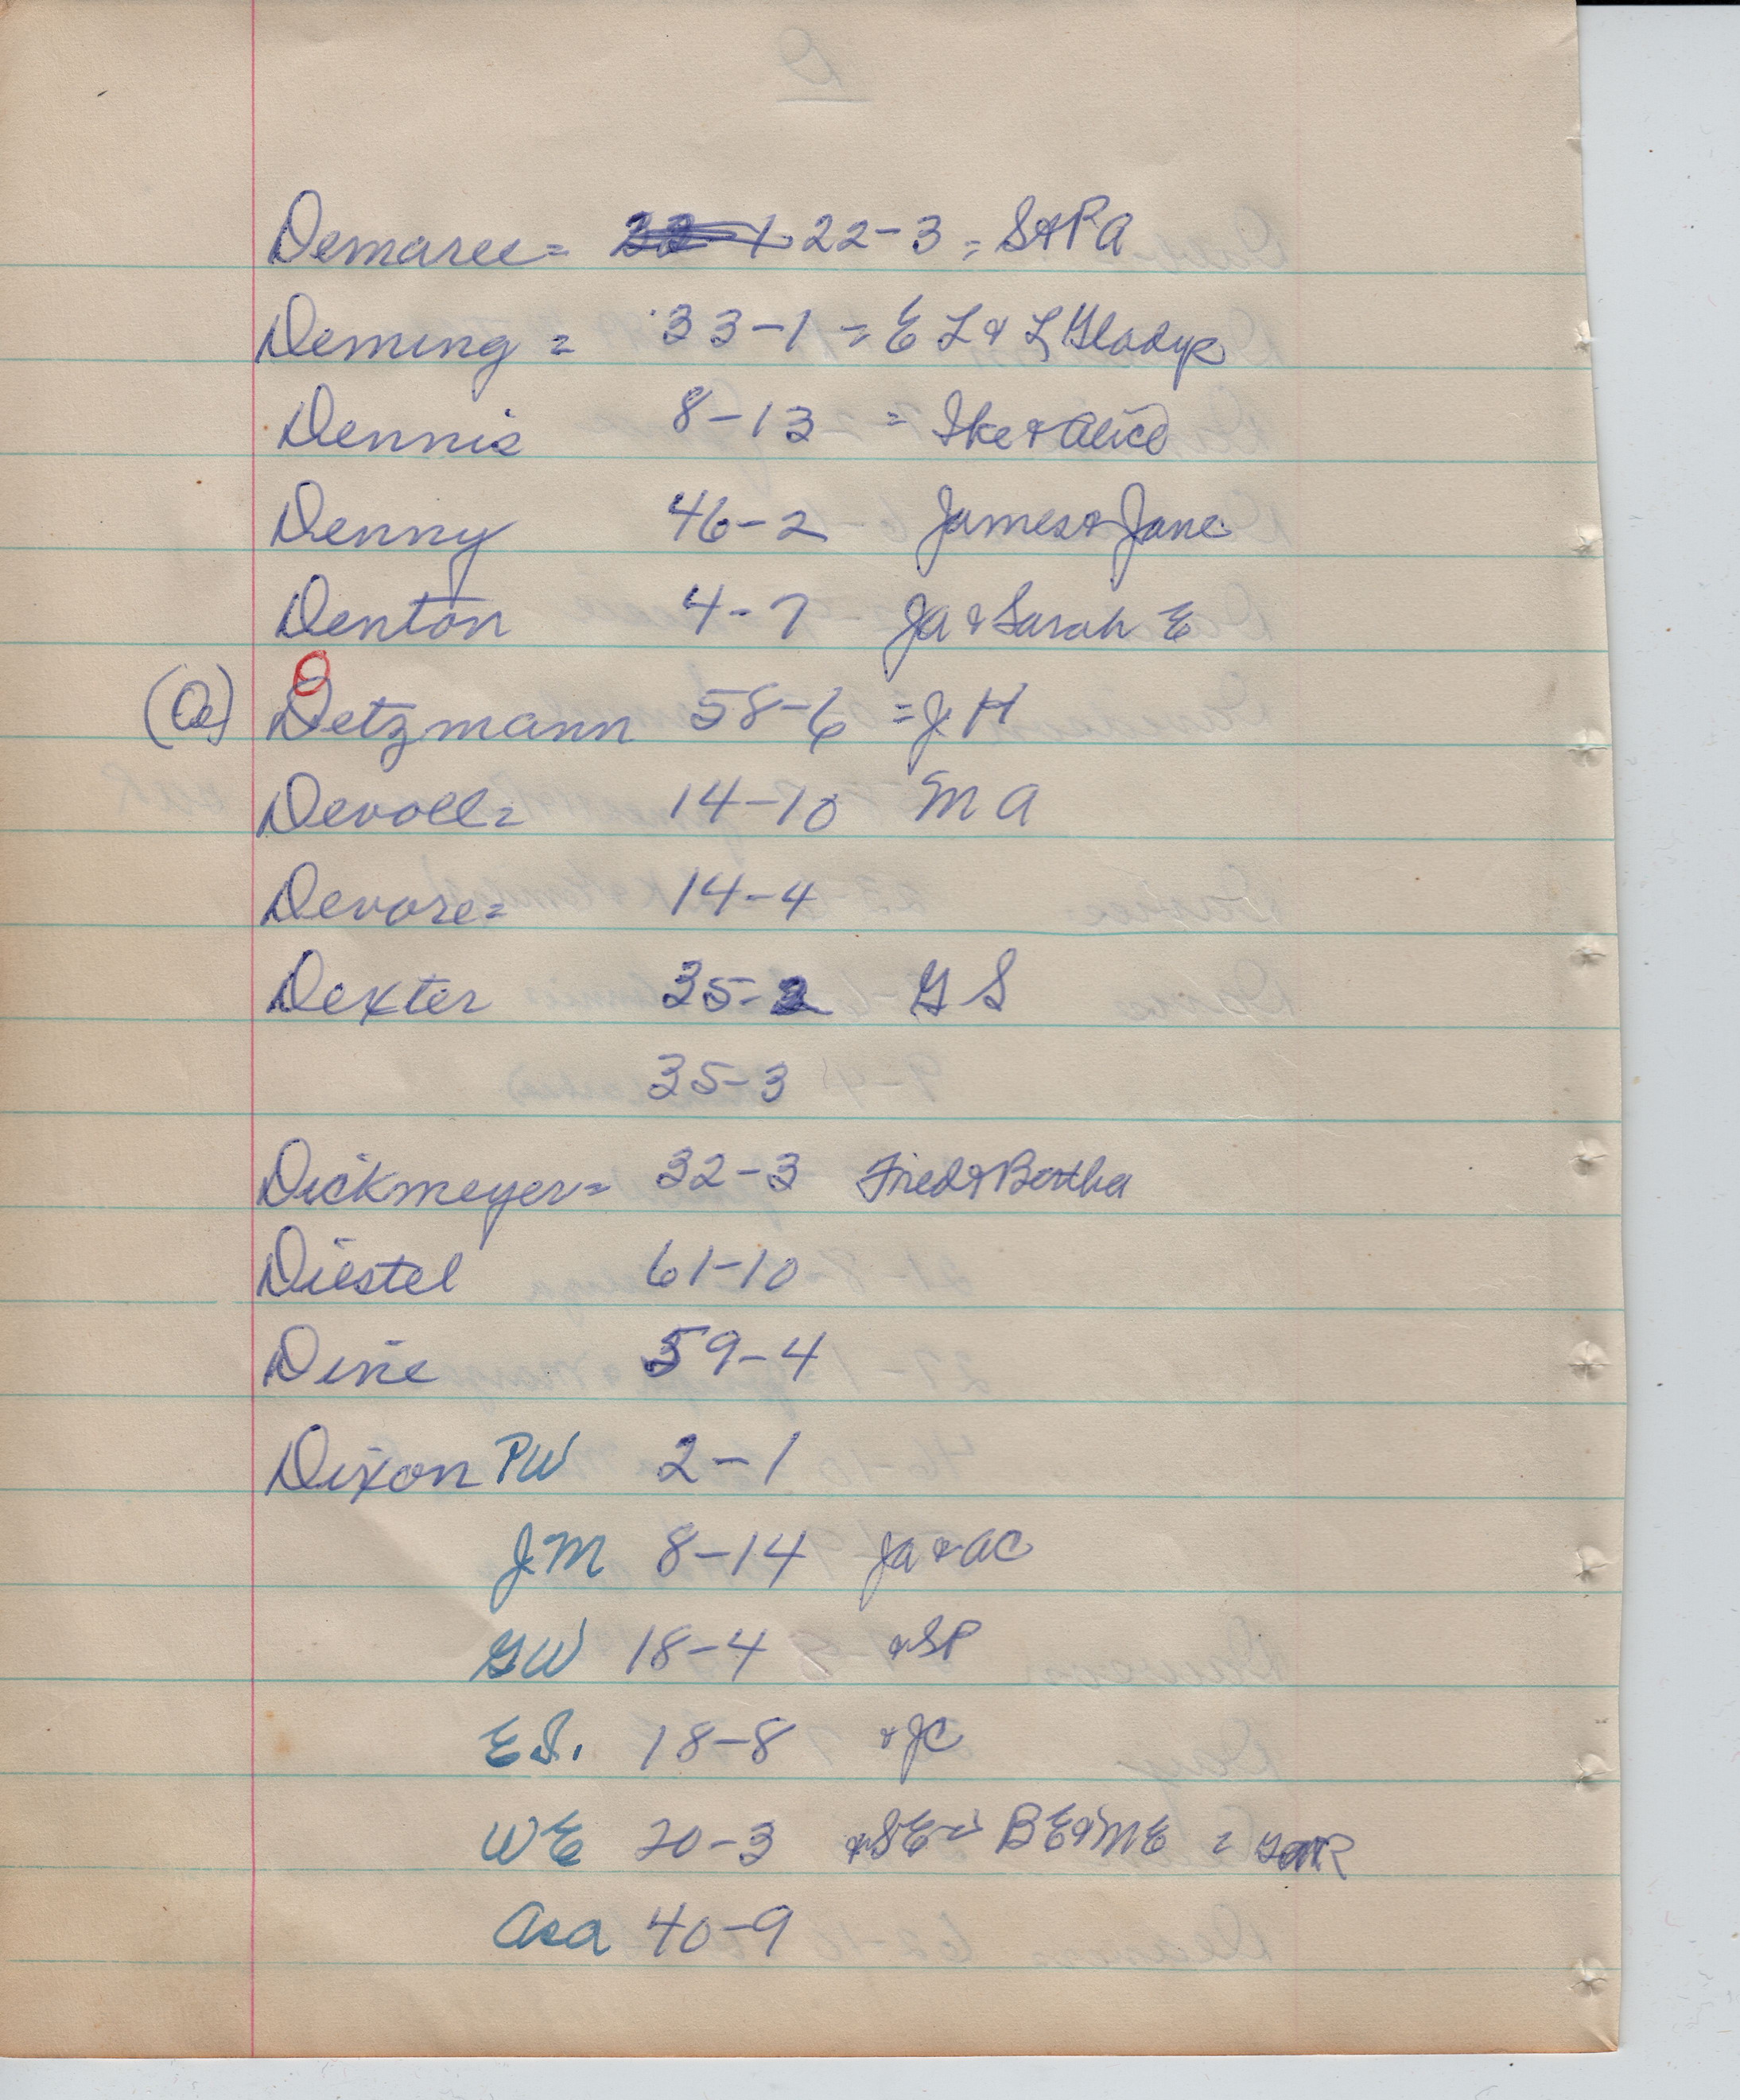 Demaree = 22-3 = S & P A
Deming = 33-1 = E L & L Gladys
Dennis 8-13 = Ike & Alice
Denny 46-2 James & Jane
Denton 4-7 JA & Sarah E
(O) Detzmann 58-6 = J H
Devoll = 14-10 M A
Devore = 14-4
Dexter 35-2 G S
35-3
Dickmeyer = 32-3 Fred & Bertha
Diestel 61-10
Dine 59-4
Dixon PW 2-1
J.M 8-14 JA & AC
GW 18-4 & SP
E S. 18-8 & JC
WE 20-3 & SE = BE & ME =
Asa 40-9